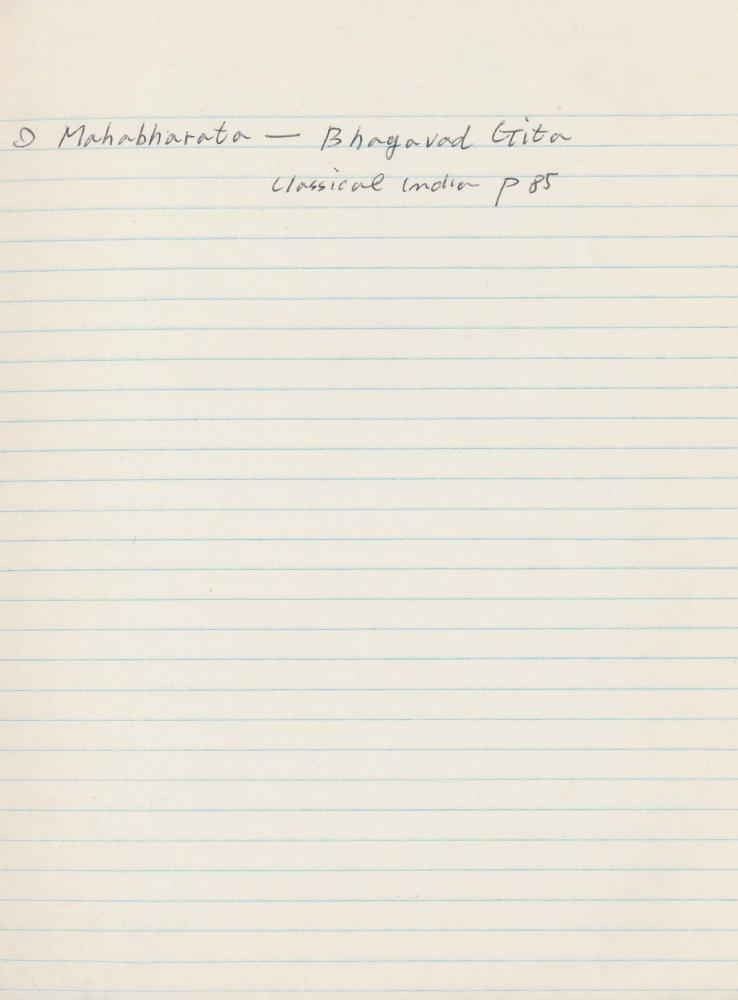 Mahabharata — Bhagavad Gita
Classical India p 85